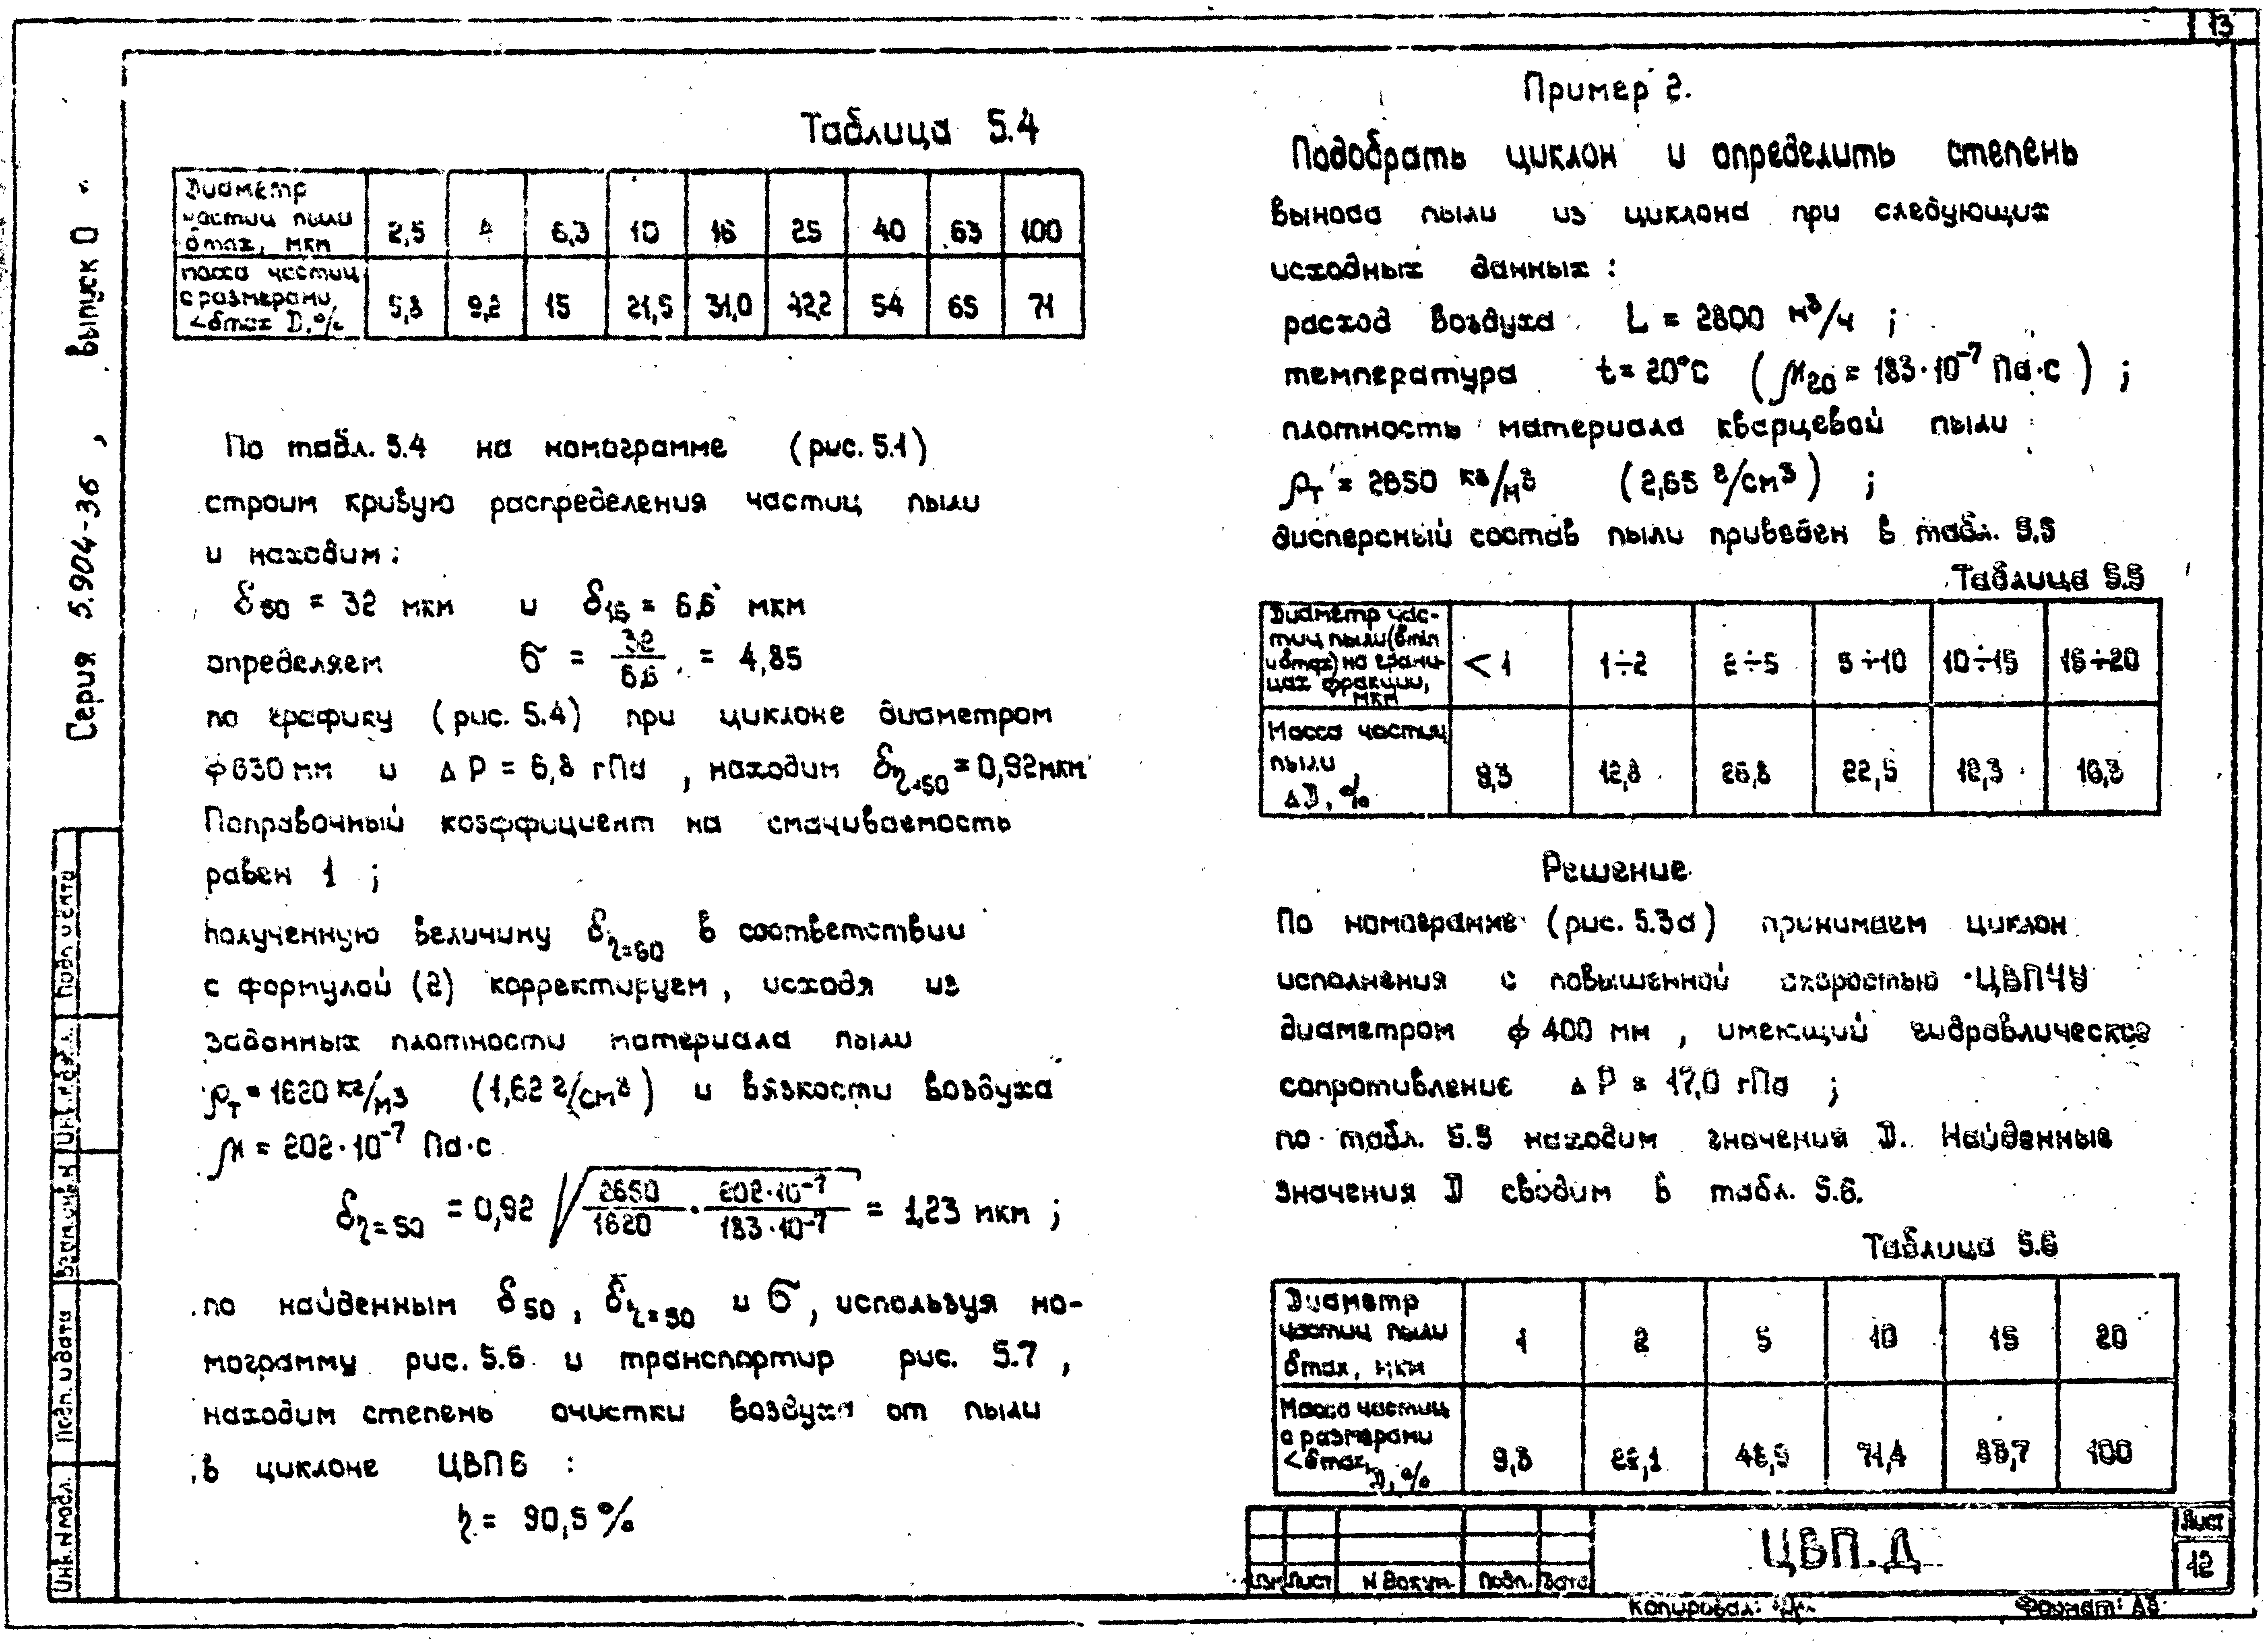 13
Серия 5.904-36 , выпуск 0
Таблица 5.4
Диаметр частиц пыли δmax, мкм 2,5 4 6,3 10 16 25 40 63 100
Масса частиц с размерами, <δmax D,% 5,8 9,2 15 21,5 31,0 42,2 54 65 71
По табл. 5.4 на номограмме (рис. 5.1)
строим кривую распределения частиц пыли
и находим:
δ50 = 32 мкм и δ15 = 6,6 мкм
определяем σ = 32/6,6 = 4,85
по графику (рис. 5.4) при циклоне диаметром
ϕ630 мм и ΔP = 6,8 гПа , находим δη=50 = 0,92 мкм
Поправочный коэффициент на смачиваемость
равен 1 ;
полученную величину δη=50 в соответствии
с формулой (2) корректируем, исходя из
заданных плотности материала пыли
ρт = 1620 кг/м3 (1,62 г/см3) и вязкости воздуха
μ = 202·10-7 Па·с
δη=50 = 0,92 √(2650/1620 · 202·10-7/183·10-7) = 1,23 мкм ;
по найденным δ50 , δη=50 и σ , используя но-
мограмму рис. 5.6 и транспортир рис. 5.7 ,
находим степень очистки воздуха от пыли
в циклоне ЦВП6 :
η = 90,5 %
Пример 2.
Подобрать циклон и определить степень
выноса пыли из циклона при следующих
исходных данных :
расход воздуха L = 2800 м3/ч ;
температура t = 20°С (μ20 = 183·10-7 Па·с) ;
плотность материала кварцевой пыли
ρт = 2650 кг/м3 (2,65 г/см3) ;
дисперсный состав пыли приведен в табл. 5.5
Таблица 5.5
Диаметр час-
тиц пыли (δmin
и δmax) на грани-
цах фракции,
мкм <1 1÷2 2÷5 5÷10 10÷15 15÷20
Масса частиц
пыли
ΔD, % 9,3 12,8 26,8 22,5 12,3 16,3
Решение
По номограмме (рис. 5.3а) принимаем циклон
исполнения с повышенной скоростью ЦВП4У
диаметром ϕ 400 мм , имеющий гидравлическое
сопротивление ΔP = 17,0 гПа ;
по табл. 5.5 находим значения D. Найденные
значения D сводим в табл. 5.6.
Таблица 5.6
Диаметр
частиц пыли
δmax, мкм 1 2 5 10 15 20
Масса частиц
с размерами
<δmax,
D, % 9,3 22,1 48,9 71,4 83,7 100
ЦВП.Д
Лист
12
Изм Лист N докум. Подп. Дата
Копировал:
Формат: А3
Подп. и дата
Инв. N дубл.
Взам. инв. N
Подп. и дата
Инв. N подл.